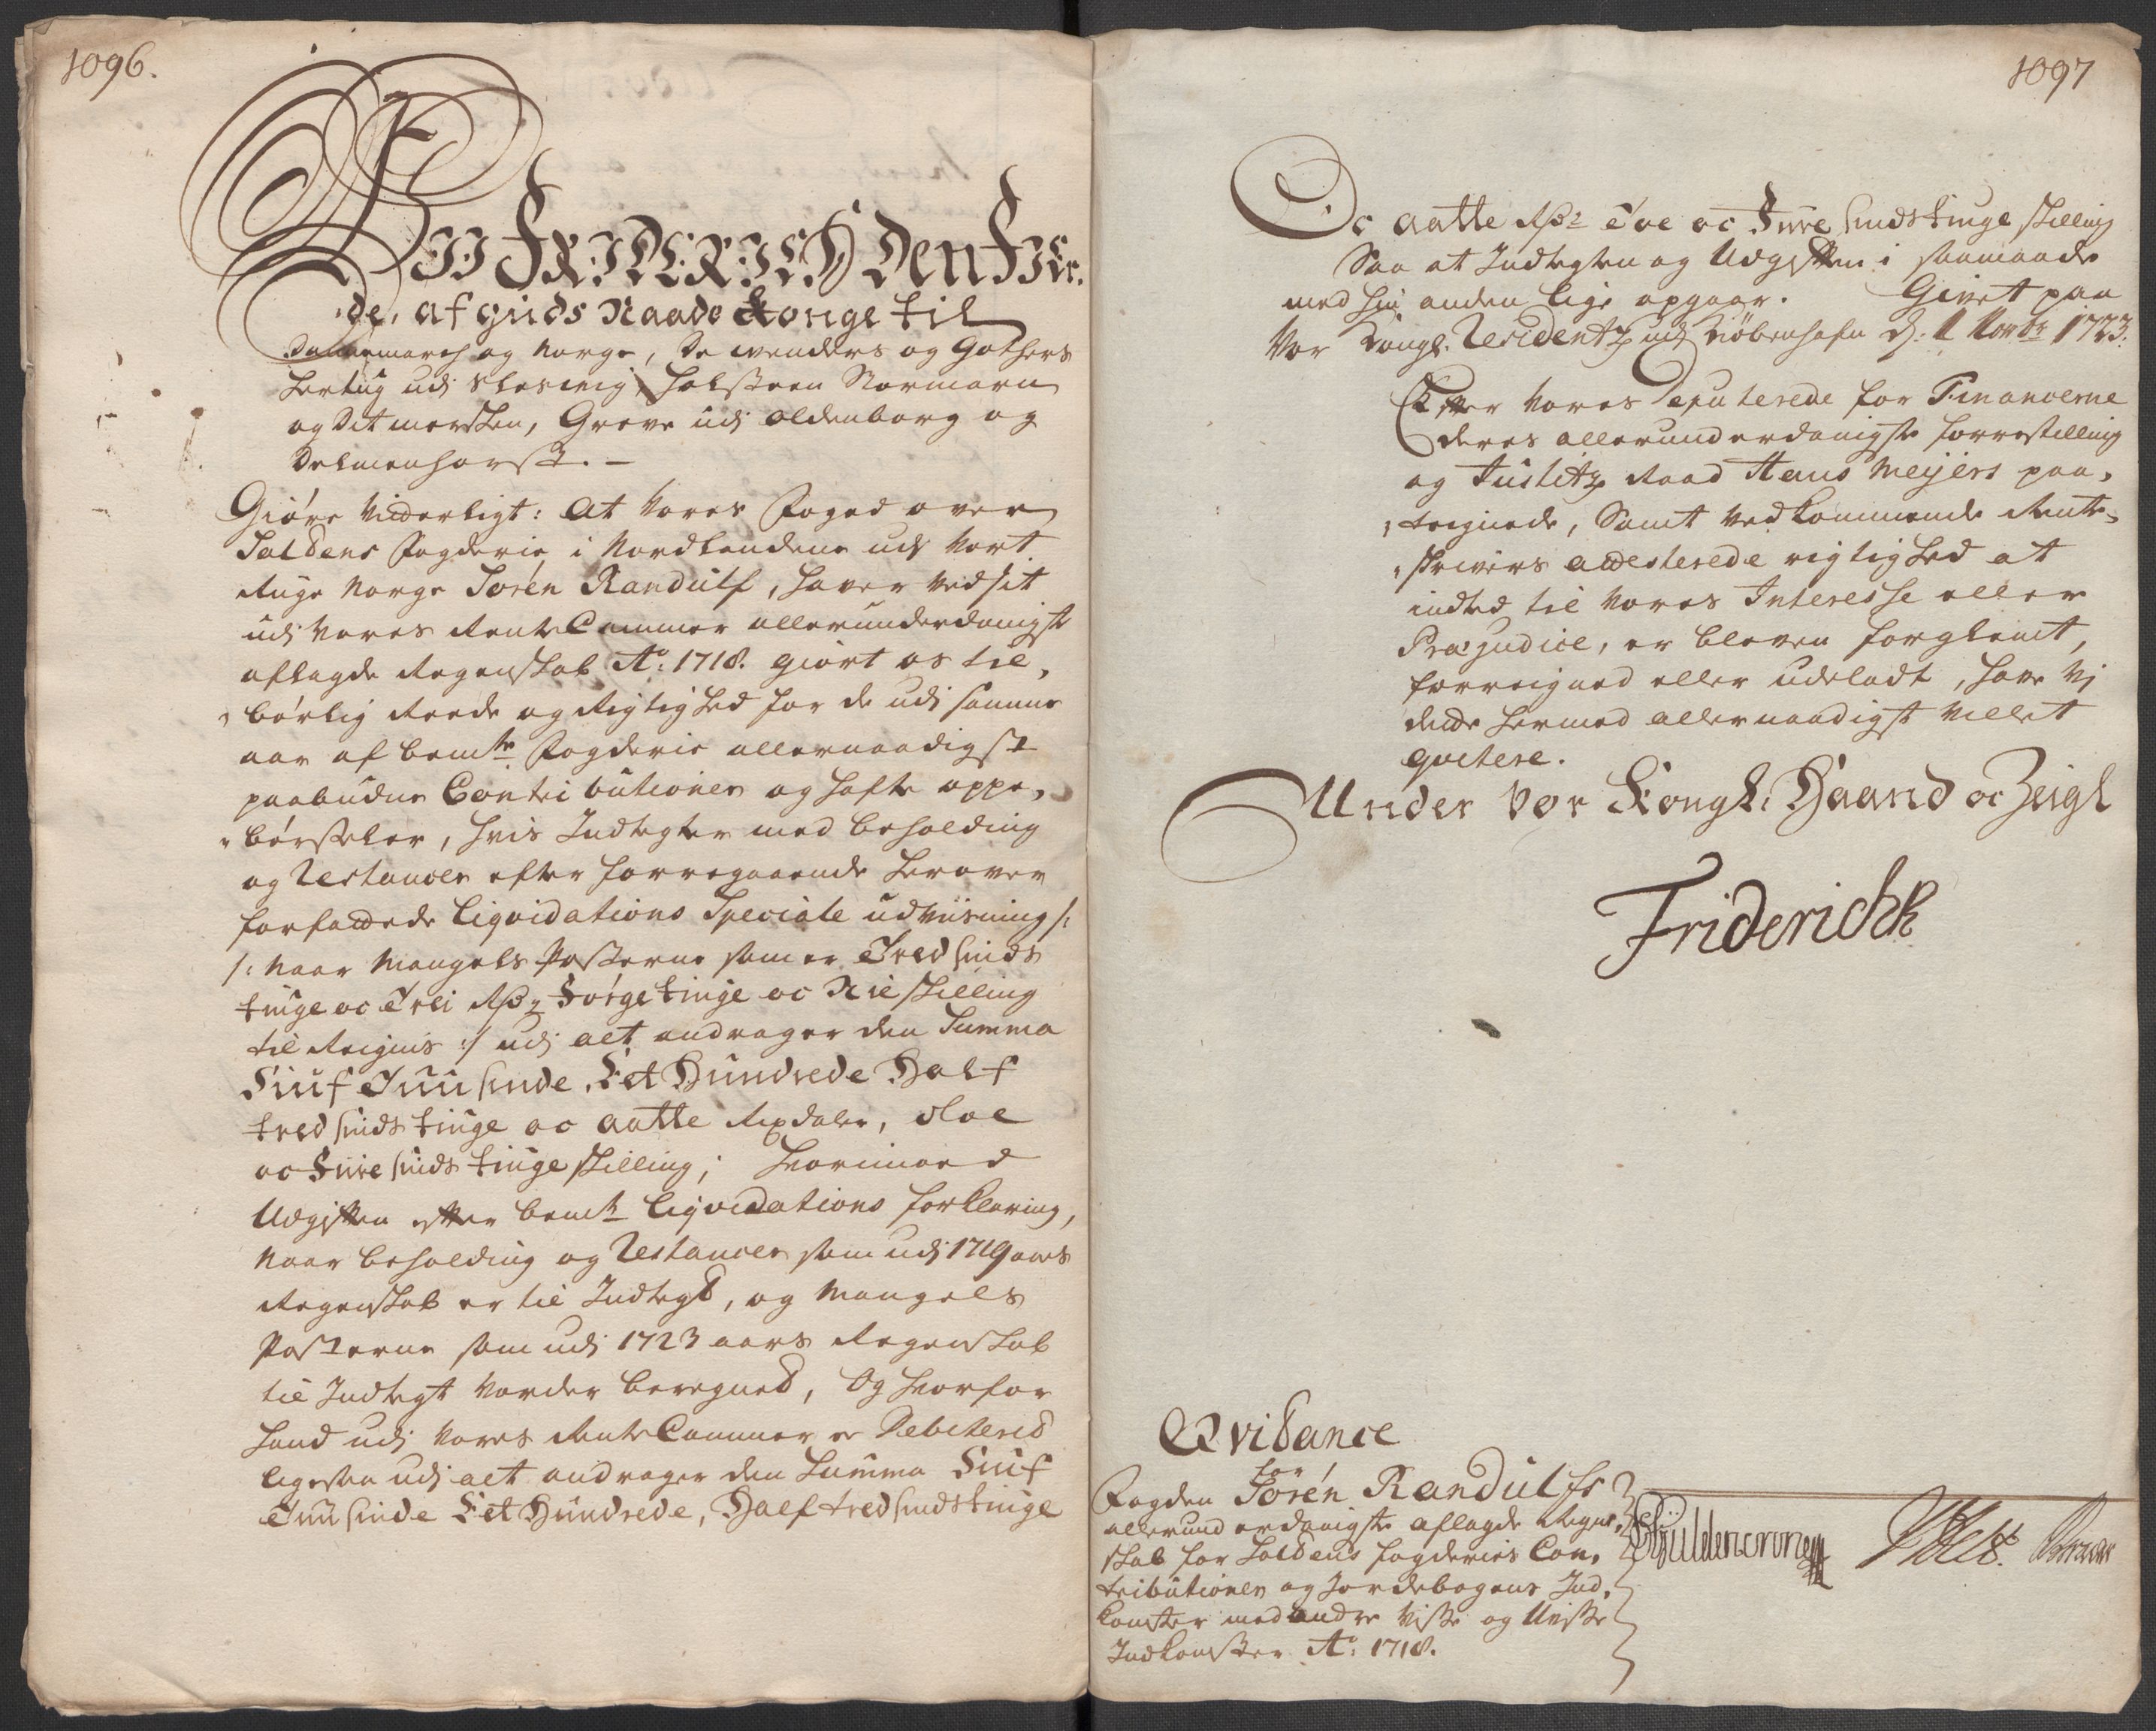 1096.
Vii FRIDERICH Den Fier,
,de, af Guds Naade Konge til
Dannemarch og Norge, De Wenders og Gothers
Hertug udj Sleswig, Holsteen Stormarn
og Ditmersken, Greve udj Oldenborg og
Delmenhorst. –
Giöre Vitterligt: At Vores Foged over
Saldens Fogderie i Nordlandene udj Vort
Riige Norge Sören Randulf, haver ved sit
udj Vores RenteCammer allerunderdanigst
aflagde Regenskab Ao: 1718. giort os til,
,börlig Reede og Rigtighed for de udj samme
aar af bemte Fogderie allernaadigst
paabudne Contributioner og hafte oppe,
,börseler, hvis Indtegter med beholding
og Restancer efter forregaaende herover
forfattede Liqvidations Speciale udviisning /:
/: Naar Mangels Posterne som er Tredsinds
tiuge oc Trei Rdr Förgetiuge oc Nie skilling
til Reignis :/ udj alt andrager den Summa
Siuf Tuusinde, Eet Hundrede Half
tredsinds tiuge oc aatte Rixdaler, Toe
oc Fiiresinds tiuge skilling; Hvorimod
Udgiften efter bemte Liqvidations forklaring,
Naar beholding og Restancer som udj 1719 aars
Regenskab er til Indtegt, og Mangels
Posterne som udj 1723 aars Regenskab
til Indtegt vorder beregned, Og hvorfor
hand udj Vores RenteCammer er Debitered
ligesaa udj alt andrager den Summa Siuf
Tuusinde Eet Hundrede, Half tredsindstiuge
1097
Oc aatte Rdr Toe oc Fiire sindstiuge skilling
Saa at Indtegten og Udgiften i saamaade
med hin anden lige opgaar. Givet paa
Vor Kongl. Residentz udj Kiöbenhafn d: 1 Novbr 1723.
Efter Vores Deputerede for Financerne
deres allerunderdanigste forrestilling
og Justitz Raad Hans Meijers paa,
,teignede, Samt Vedkommende Rente,
,skrivers attesterede rigtighed at
indted til Vores Interesse eller
Præjudice, er bleven forglemt,
forreigned eller udeladt, have Vj
dette hermed allernaadigst Villet
qvitere.
Under Vor Kongl. Haand oc Zeigl
Friderich R
Qvitance
for
Fogden Sören Randulfs
allerunderdanigste aflagde Regen,
skab for Saldens fogderies Con,
tributioner og Jordebogens Ind,
komster med andre Visse og Uvisse
Indkomster Ao: 1718.
CGyldencrone